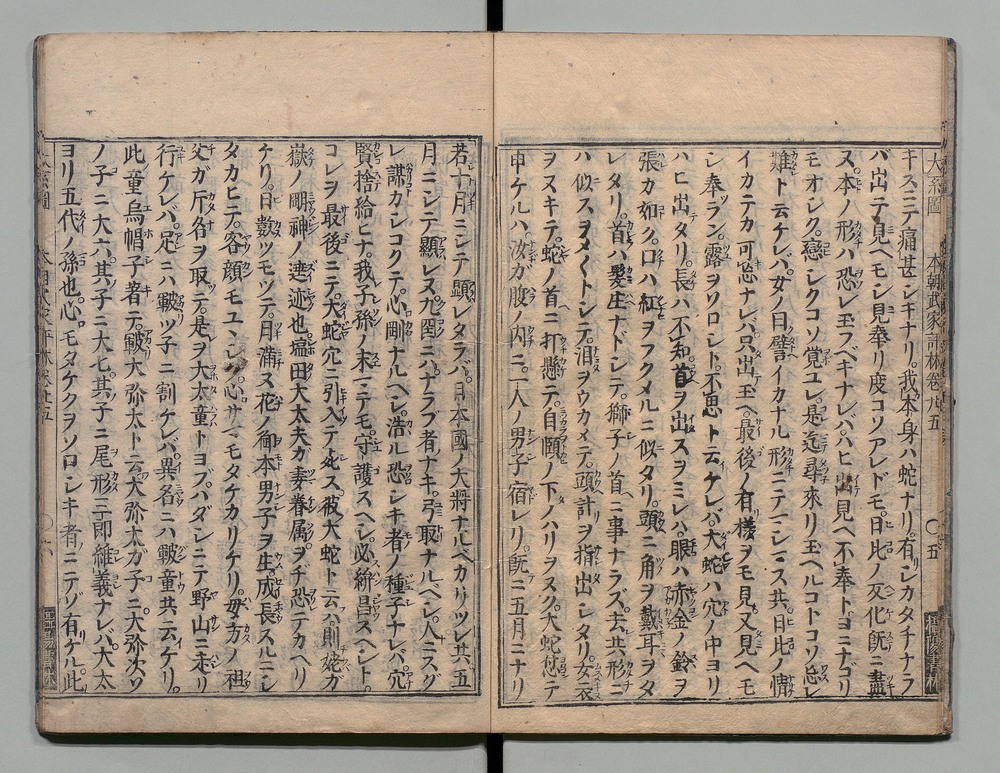 大系圖　本朝武家評林卷廿五　〇五
キスニテ痛甚シキナリ。我本身ハ蛇ナリ。有シカタチナラ
バ出テ見ヘモシ見奉リ度コソアレドモ。日比ノ変化既ニ盡
ヌ。本ノ形ハ恐レ玉フベキナレバ。ハヒ出見ヘ不奉ト。ヨニナゴリ
モオシク。戀シクコソ覚ユレ。是迄尋來リ玉ヘルコトコソ忘レ
難ト云ケレバ。女ノ曰譬イカナル形ニテマシマス共。日比ノ情
イカテカ可忘ナレバ只出玉ヘ。最後ノ有樣ヲモ見又見ヘモ
シ奉ラン。露ヲソロシト不思ト云ケレバ。大蛇ハ穴ノ中ヨリ
ハヒ出タリ。長ハ不知首ヲ出スヲミレハ。眼ハ赤金ノ鈴ヲ
張カ如ク。口ハ紅ヲフクメルニ似タリ。頭ニ角ヲ戴耳ヲタ
レタリ。首ハ髮生ナドシテ。獅子ノ首ニ事ナラズ。去共形ニ
ハ似スヲメ〱トシテ。泪ヲウカメテ。頭計ヲ指出シタリ。女衣
ヲヌキテ。蛇ノ首ニ打懸テ。自頤ノ下ノハリヲヌク。大蛇悦テ
申ケルハ。汝ガ腹ノ内ニ。一人ノ男子宿レリ。既ニ五月ニナリ
若十月ニシテ顕レタラバ。日本國ノ大將ナルベカリツレ共。五
月ニシテ顯レヌ九國ニハナラブ者ナキ。弓取ナルヘシ。人ニスグ
レ謀カシコクテ。心剛ナルヘシ。浩ル恐シキ者ノ種子ナレバ。穴
賢捨給ヒナ。我子孫ノ末マテモ。守護スヘシ。必繁昌スヘシト。
コレヲ最後ニテ。大蛇穴ニ引入テ死ス。彼大蛇ト云ハ。則姥ガ
嶽ノ明神ノ垂迹也。塩田大太夫ガ妻眷属ヲチ恐テカヘリ
ケリ。日數ツモツテ。月滿ヌ花ノ御本男子ヲ生成長スルニシ
タカヒテ。容顔モユヽシク。心サマモタケカリケリ。母方ノ祖
父ガ斤名ヲ取テ。是ヲ大太童トヨブ。ハダシニテ野山ニ走リ
行ケレバ。足ニハ皸ツ子ニ割ケレバ。異名ニハ皸童共云ケリ。
此童烏帽子著テ。皸大弥太ト云。大弥太ガ子ニ大弥次ソ
ノ子ニ大六其子ニ大七其子ニ尾形三郎維義ナレバ。大太
ヨリ五代ノ孫也。心モタケクヲソロシキ者ニテゾ有ケル。此
〇六